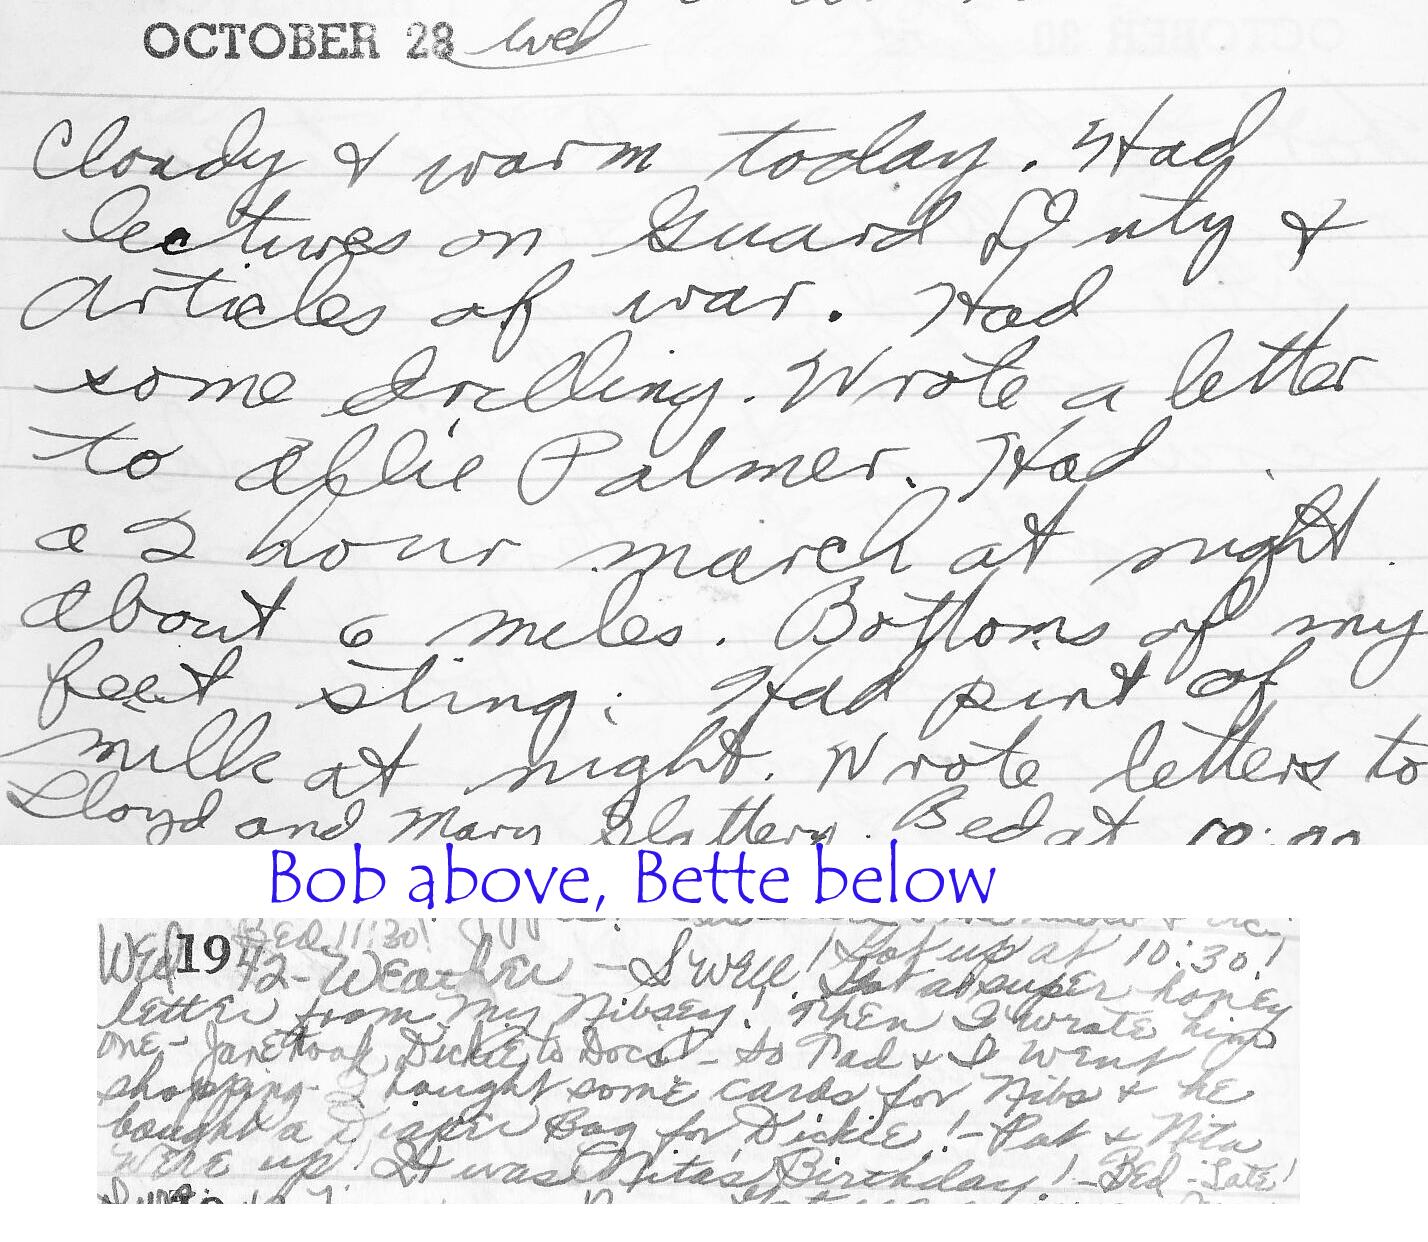 OCTOBER 28 Wed
Cloudy & warm today. Had
lectures on Guard Duty &
Articles of war. Had
some drilling. Wrote a letter
to Palmer. Had
a 2 hour march at night
about 6 miles. Bottoms of my
feet sting. Had pint of
milk at night. Wrote letters to
Lloyd and Mary Slattery. Bed at 10:
Bob above, Bette below
Bed 11:30!
Wed 1942 - Weather - Swell! Got up at 10:30!
Got a super honey
letter from My Nibsey! Then I wrote him
one - Jane took Dickie to Docs - So Tad & I went
shopping - I bought some cards for Nibs & he
bought a Diaper Bag for Dickie! - Pat & Nita
were up! It was Nitas Birthday! - Bed - Late!